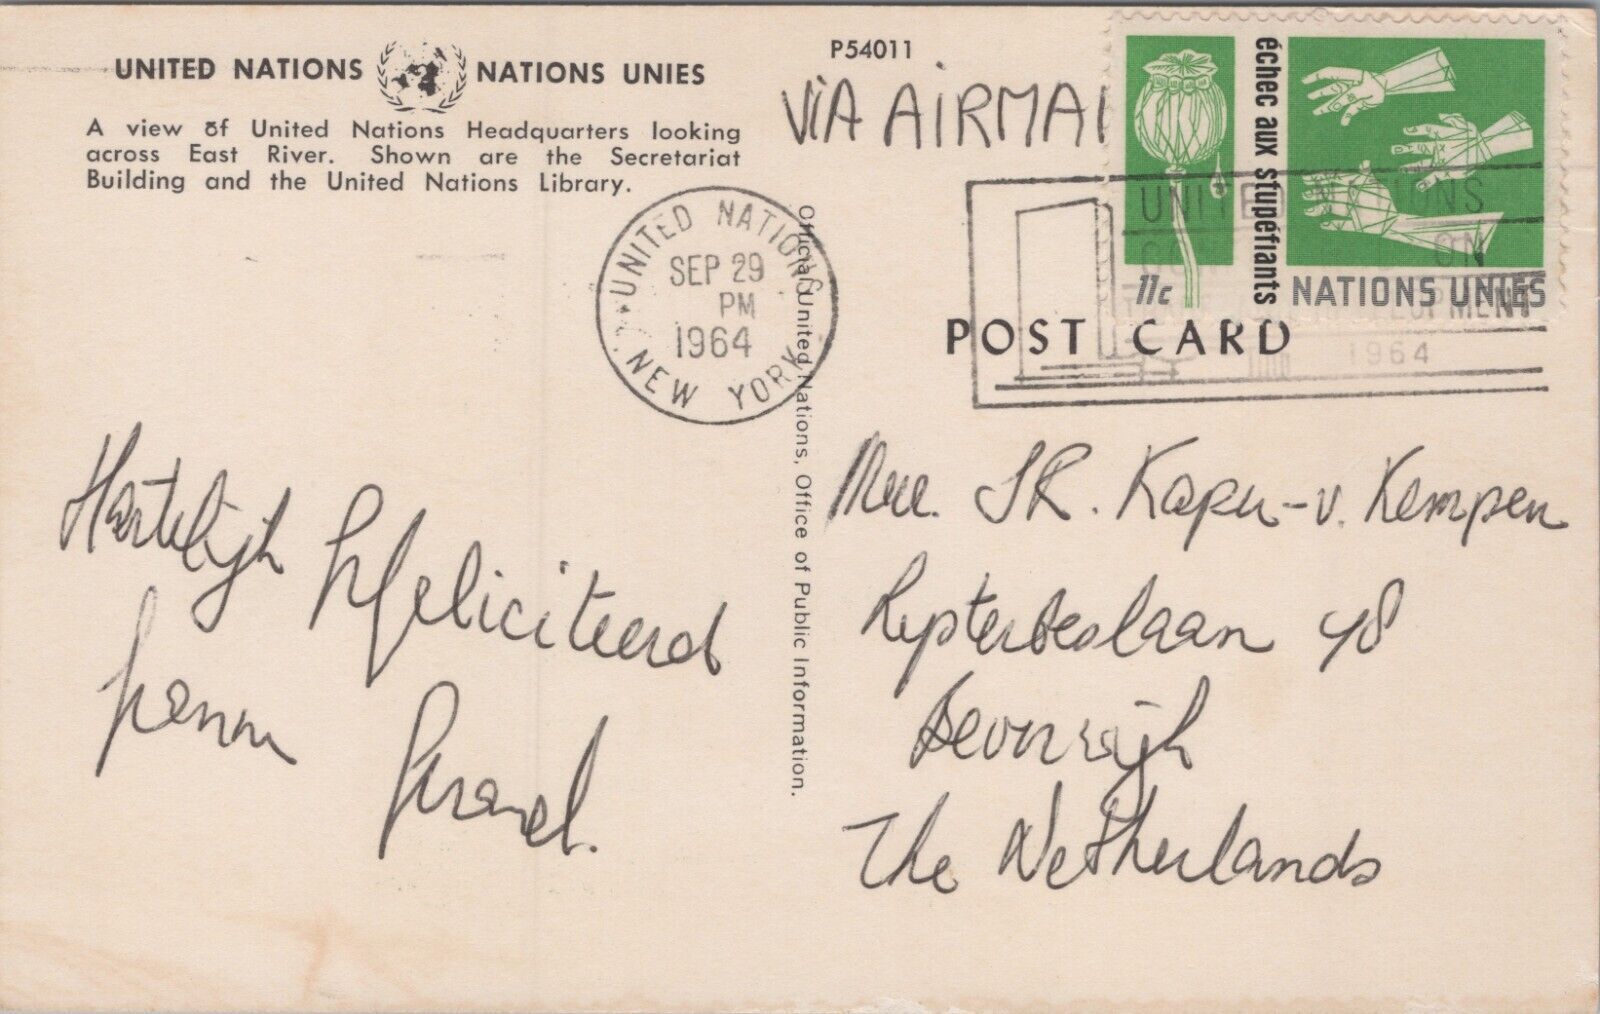 UNITED NATIONS NATIONS UNIES
A view of United Nations Headquarters looking
across East River. Shown are the Secretariat
Building and the United Nations Library.
P54011
VIA AIRMAI
échec aux stupéfiants
11c
NATIONS UNIES
UNITED NATIONS
SEP 29
PM
1964
NEW YORK
UNITED NATIONS
ON
1964
POST CARD
Official United Nations, Office of Public Information.
Hartelijk gefeliciteerd
Mw. J.R. Kapu-v. Kempen
48
Beverwijk
The Netherlands